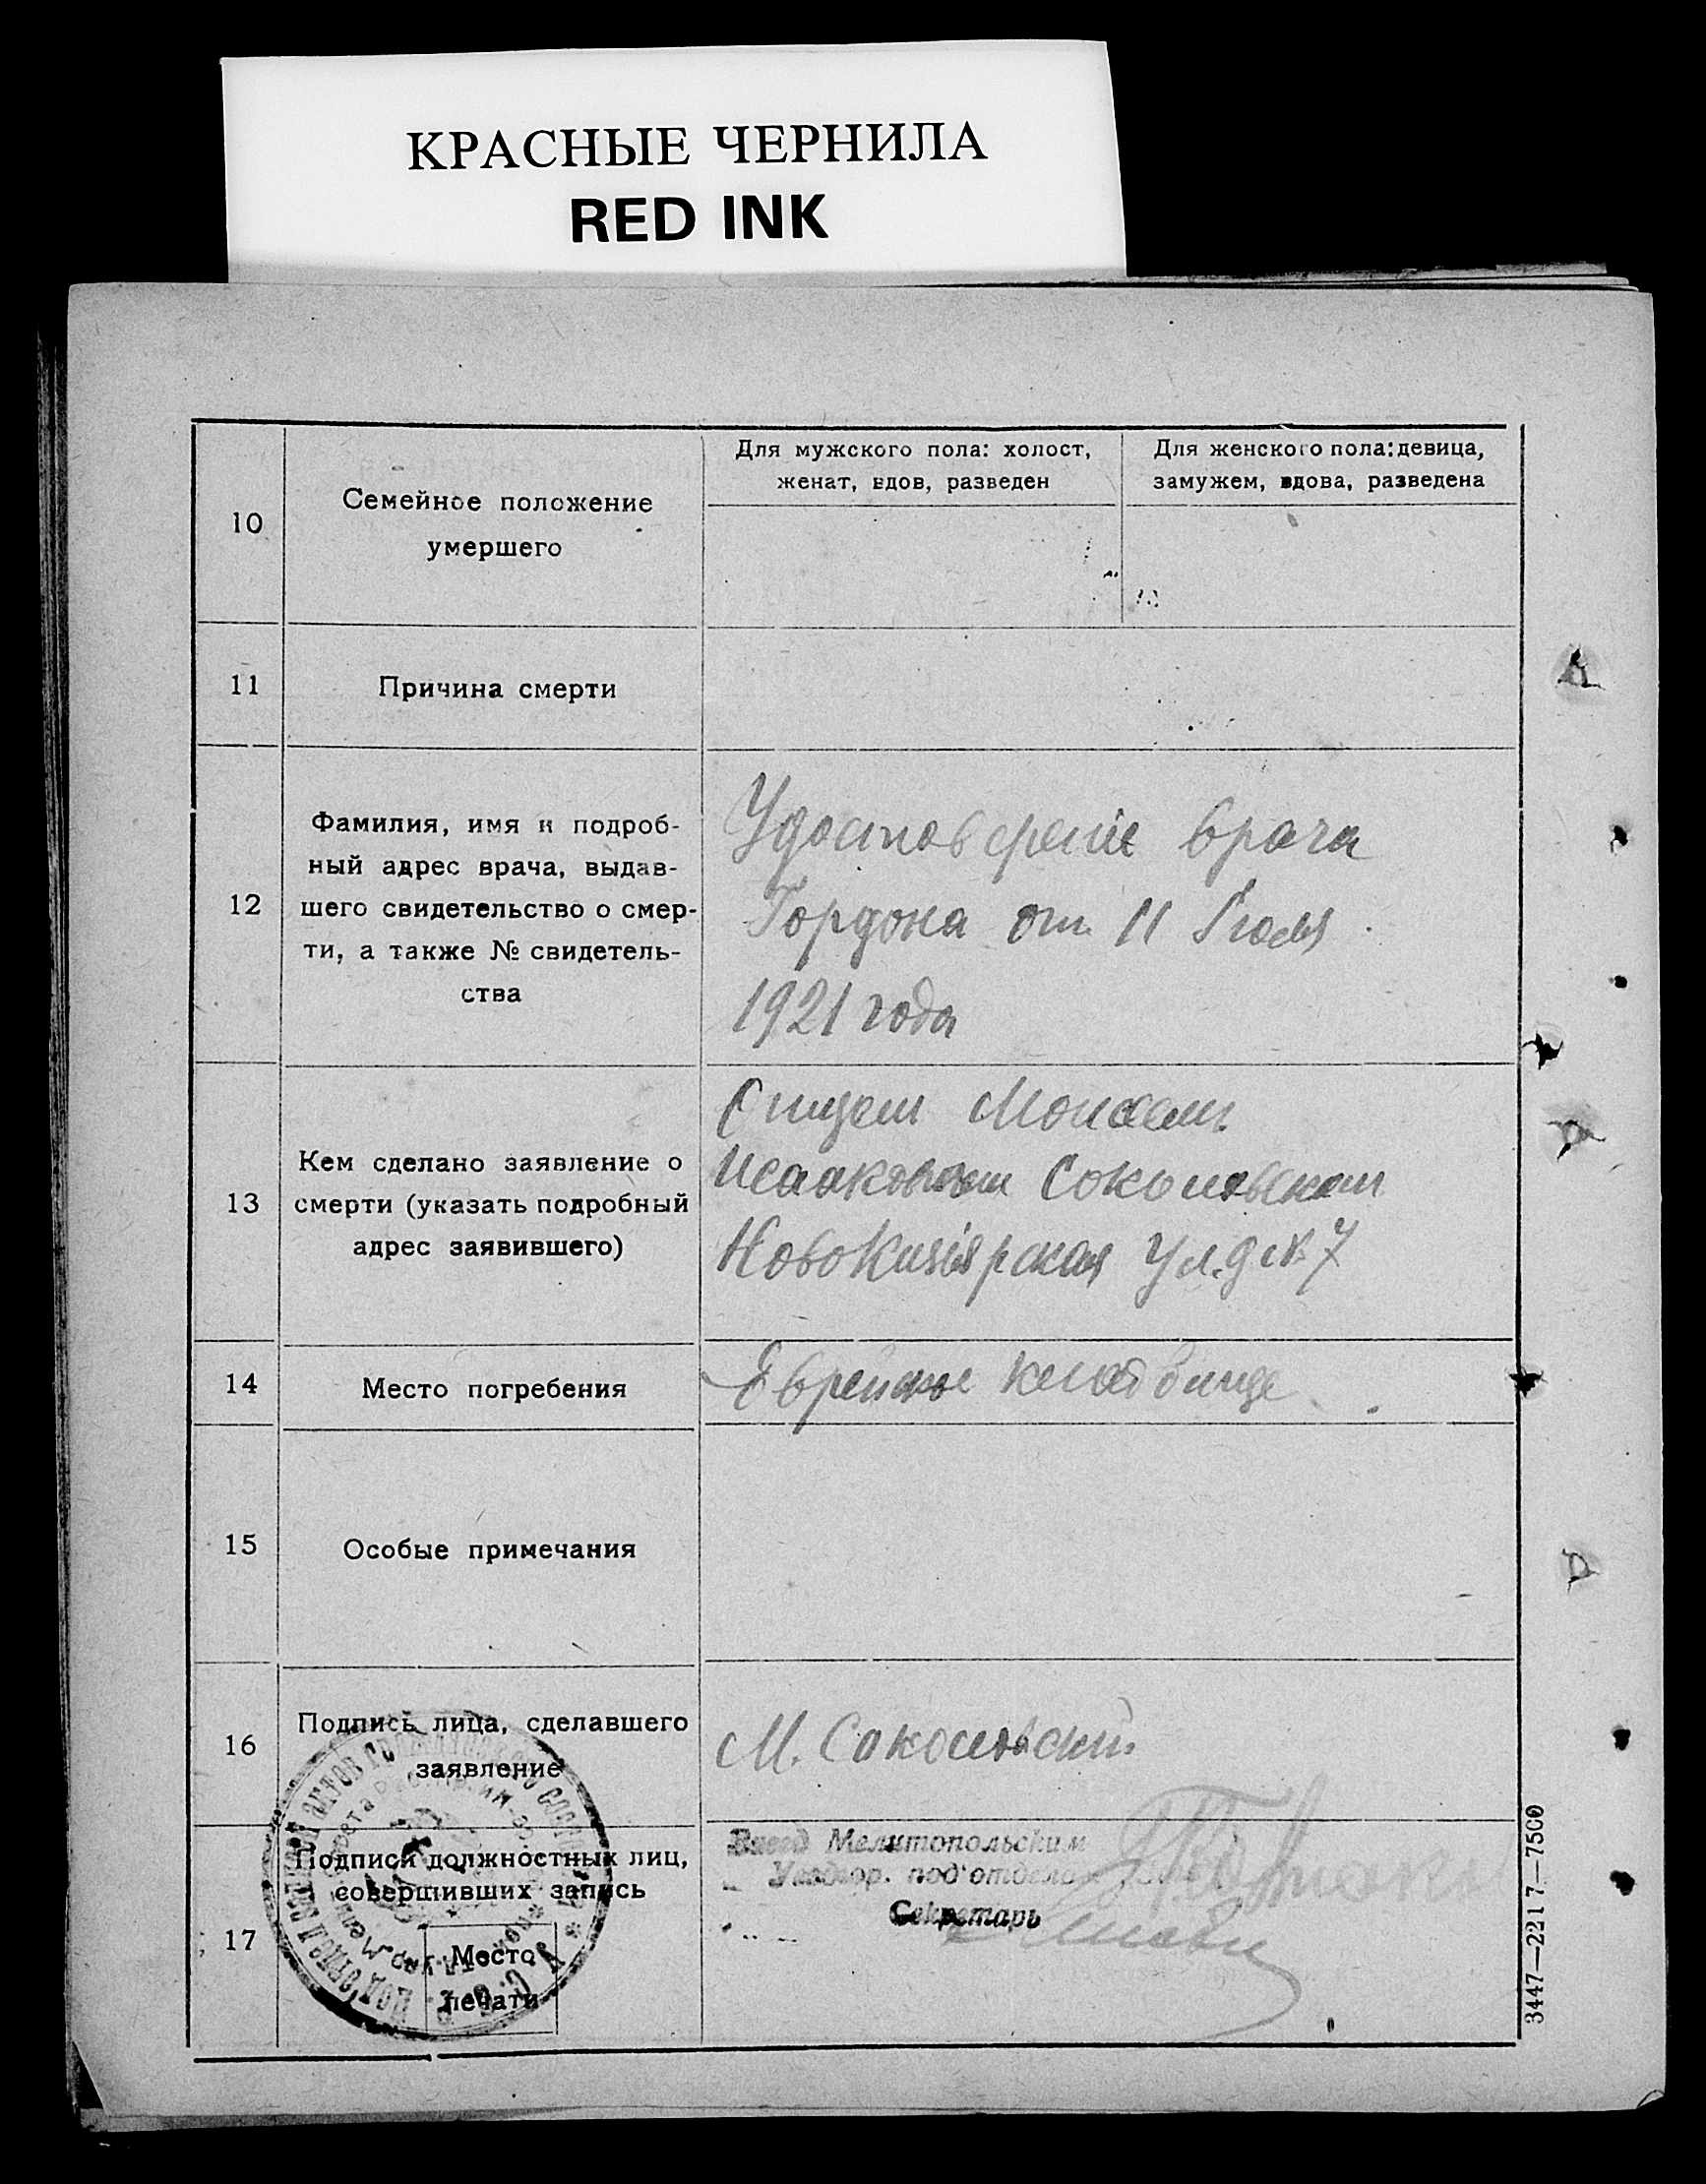 КРАСНЫЕ ЧЕРНИЛА
RED INK
10
Семейное положение
умершего
Для мужского пола: холост,
женат, вдов, разведен
Для женского пола: девица,
замужем, вдова, разведена
11
Причина смерти
12
Фамилия, имя и подроб-
ный адрес врача, выдав-
шего свидетельство о смер-
ти, а также № свидетель-
ства
Удостоверение врача
Гордона от 11 Іюля
1921 года
13
Кем сделано заявление о
смерти (указать подробный
адрес заявившего)
Отцем Моисеем
Исааковичем Соколовским
ул. д № 7
14
Место погребения
Еврейское кладбище
15
Особые примечания
16
Подпись лица, сделавшего
заявление
М. Соколовский
17
Подписи должностных лиц,
совершивших запись
Место
печати
Мелитопольским
под'отделом
Секретарь
3447—2217—7500